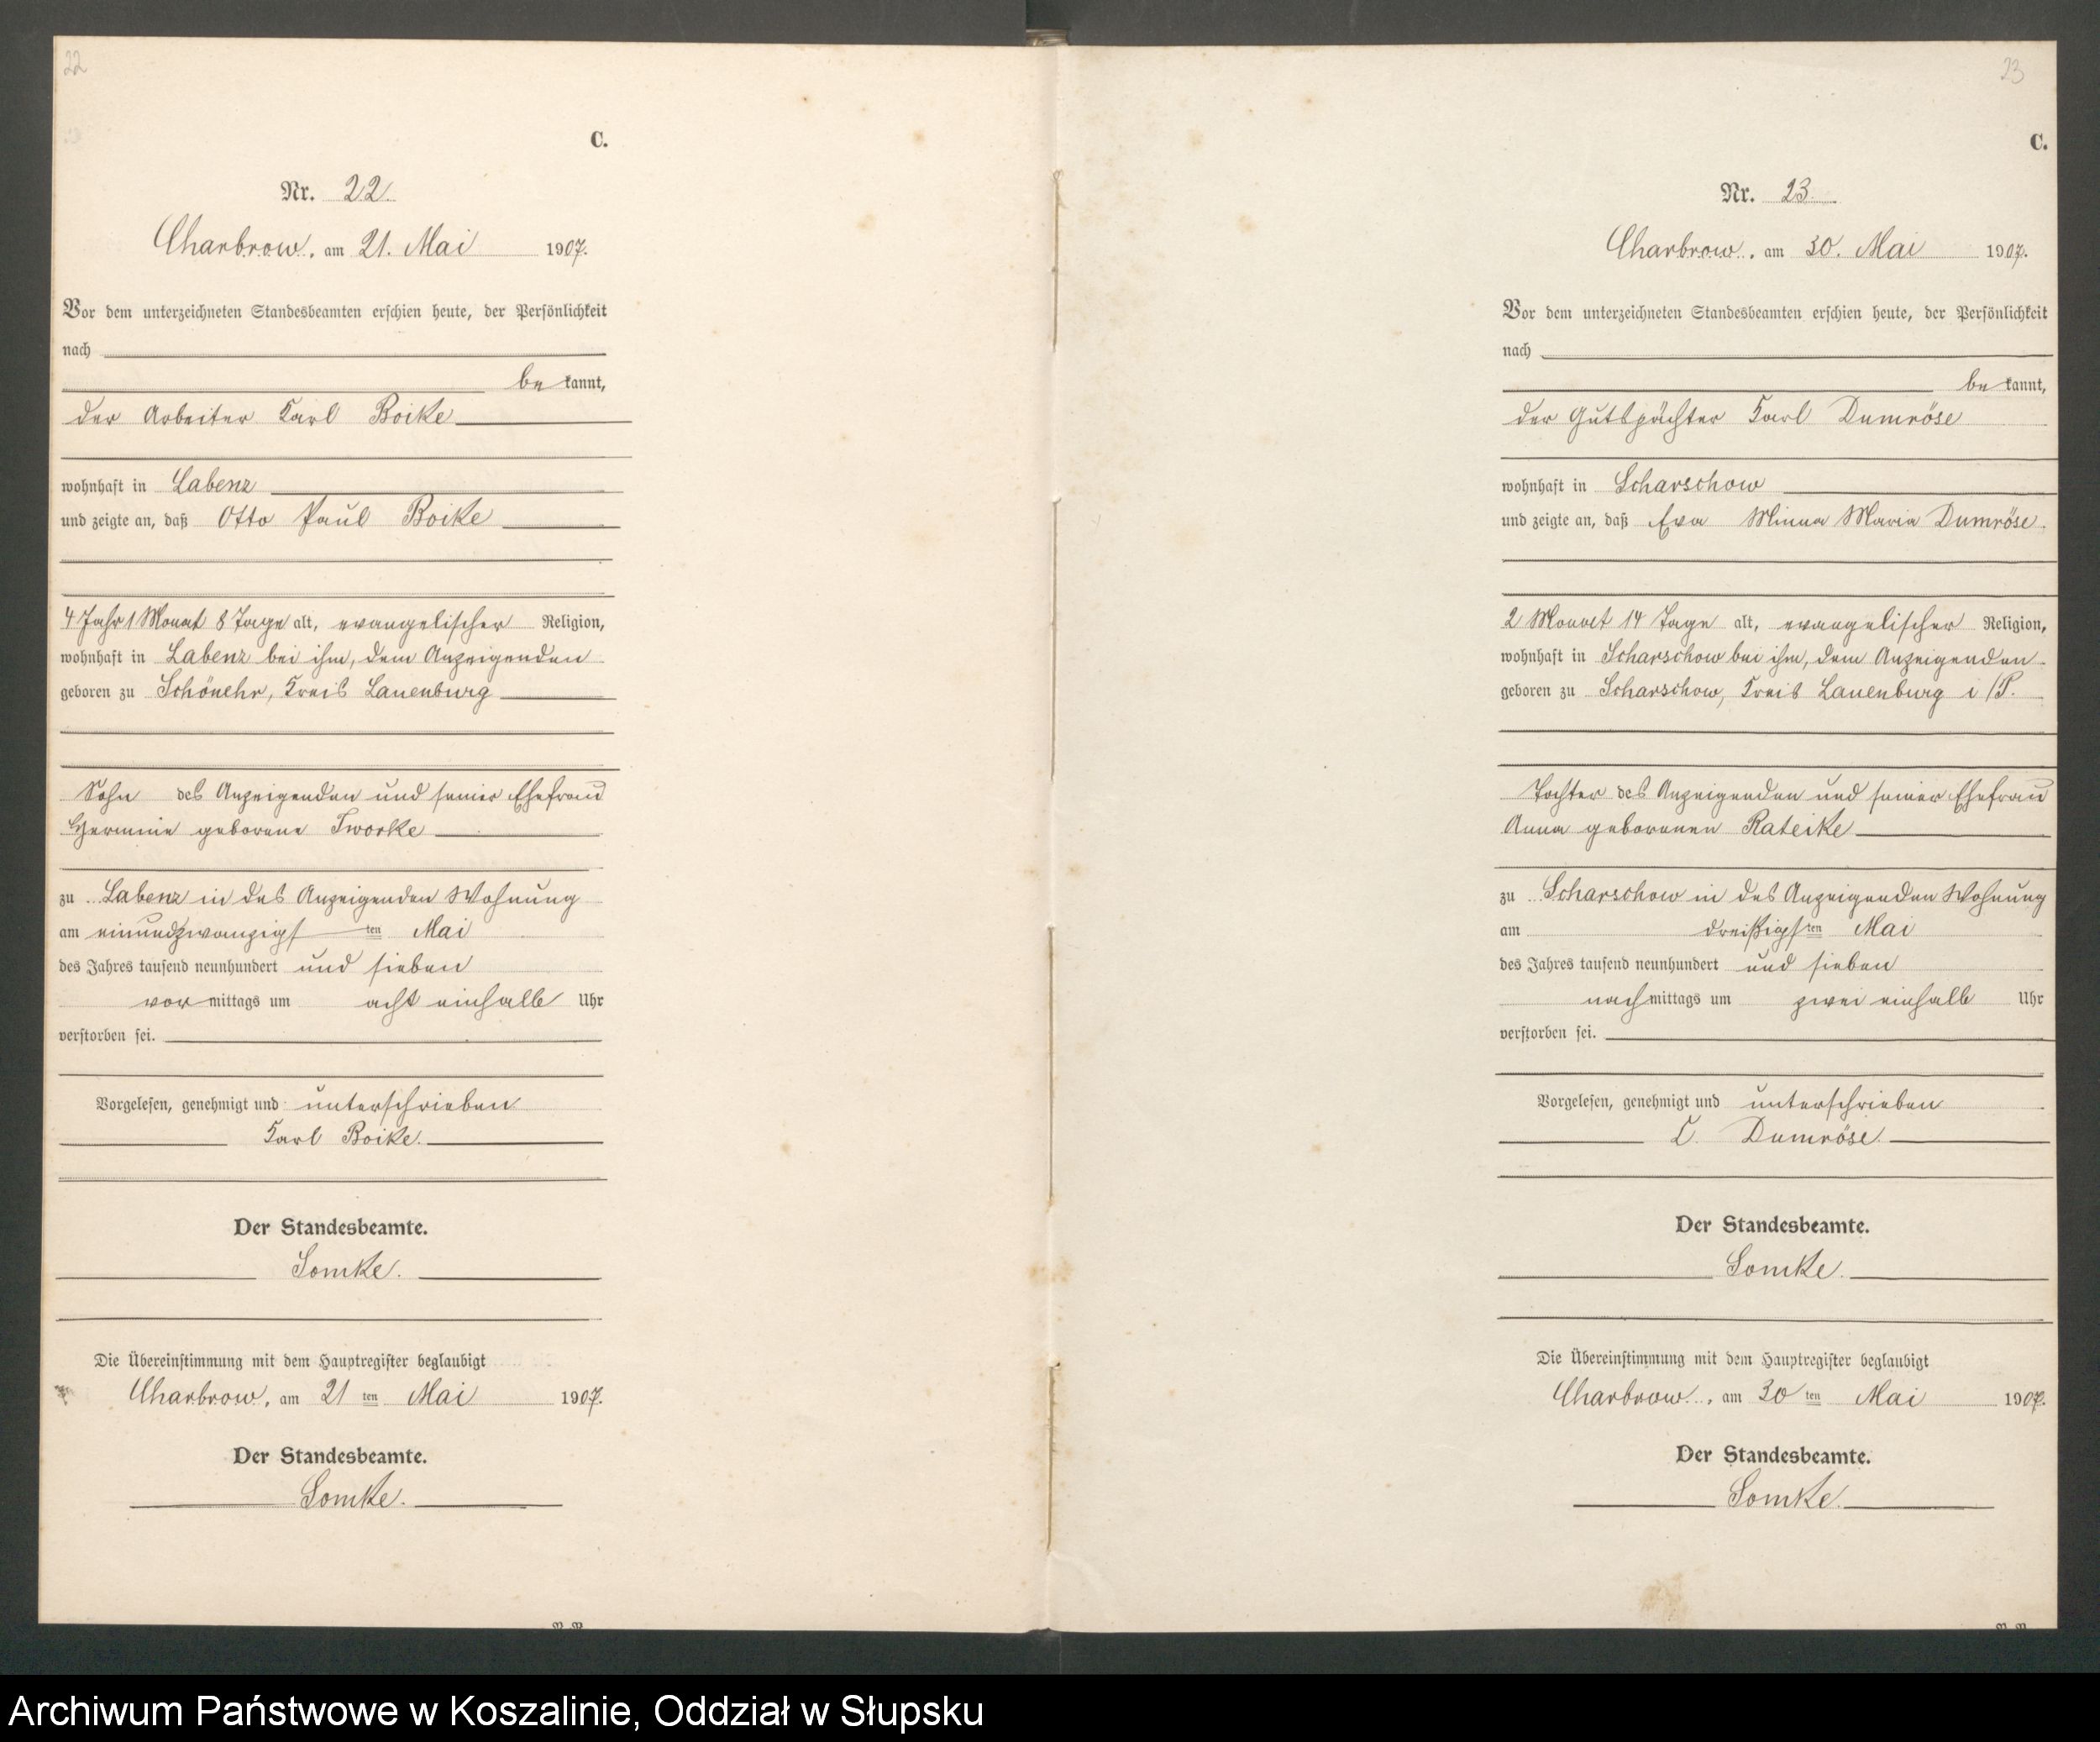 22
C.
Nr. 22.
Charbrow, am 21. Mai 1907.
Vor dem unterzeichneten Standesbeamten erschien heute, der Persönlichkeit
nach
be kannt,
der Arbeiter Karl Boike
wohnhaft in Labenz
und zeigte an, daß Otto Paul Boike
4 Jahr 1 Monat 8 Tage alt, evangelischer Religion,
wohnhaft in Labenz bei ihm, dem Anzeigenden
geboren zu Schönehr, Kreis Lauenburg
Sohn des Anzeigenden und seiner Ehefrau
Hermine geborene Tworke
zu Labenz in des Anzeigenden Wohnung
am einundzwanzigsten Mai
des Jahres tausend neunhundert und sieben
vor mittags um acht einhalb Uhr
verstorben sei.
Vorgelesen, genehmigt und unterschrieben
Karl Boike.
Der Standesbeamte.
Somke.
Die Übereinstimmung mit dem Hauptregister beglaubigt
Charbrow, am 21 ten Mai 1907.
Der Standesbeamte.
Somke.
23
C.
Nr. 23.
Charbrow, am 30. Mai 1907.
Vor dem unterzeichneten Standesbeamten erschien heute, der Persönlichkeit
nach
be kannt,
der Gutspächter Karl Dumröse
wohnhaft in Scharschow
und zeigte an, daß Eva Minna Maria Dumröse
2 Monat 14 Tage alt, evangelischer Religion,
wohnhaft in Scharschow bei ihm, dem Anzeigenden
geboren zu Scharschow, Kreis Lauenburg i/P.
Tochter des Anzeigenden und seiner Ehefrau
Anna geborenen Rateike
zu Scharschow in des Anzeigenden Wohnung
am dreißigsten Mai
des Jahres tausend neunhundert und sieben
nach mittags um zwei einhalb Uhr
verstorben sei.
Vorgelesen, genehmigt und unterschrieben
C. Dumröse.
Der Standesbeamte.
Somke.
Die Übereinstimmung mit dem Hauptregister beglaubigt
Charbrow, am 30 ten Mai 1907.
Der Standesbeamte.
Somke.
Archiwum Państwowe w Koszalinie, Oddział w Słupsku